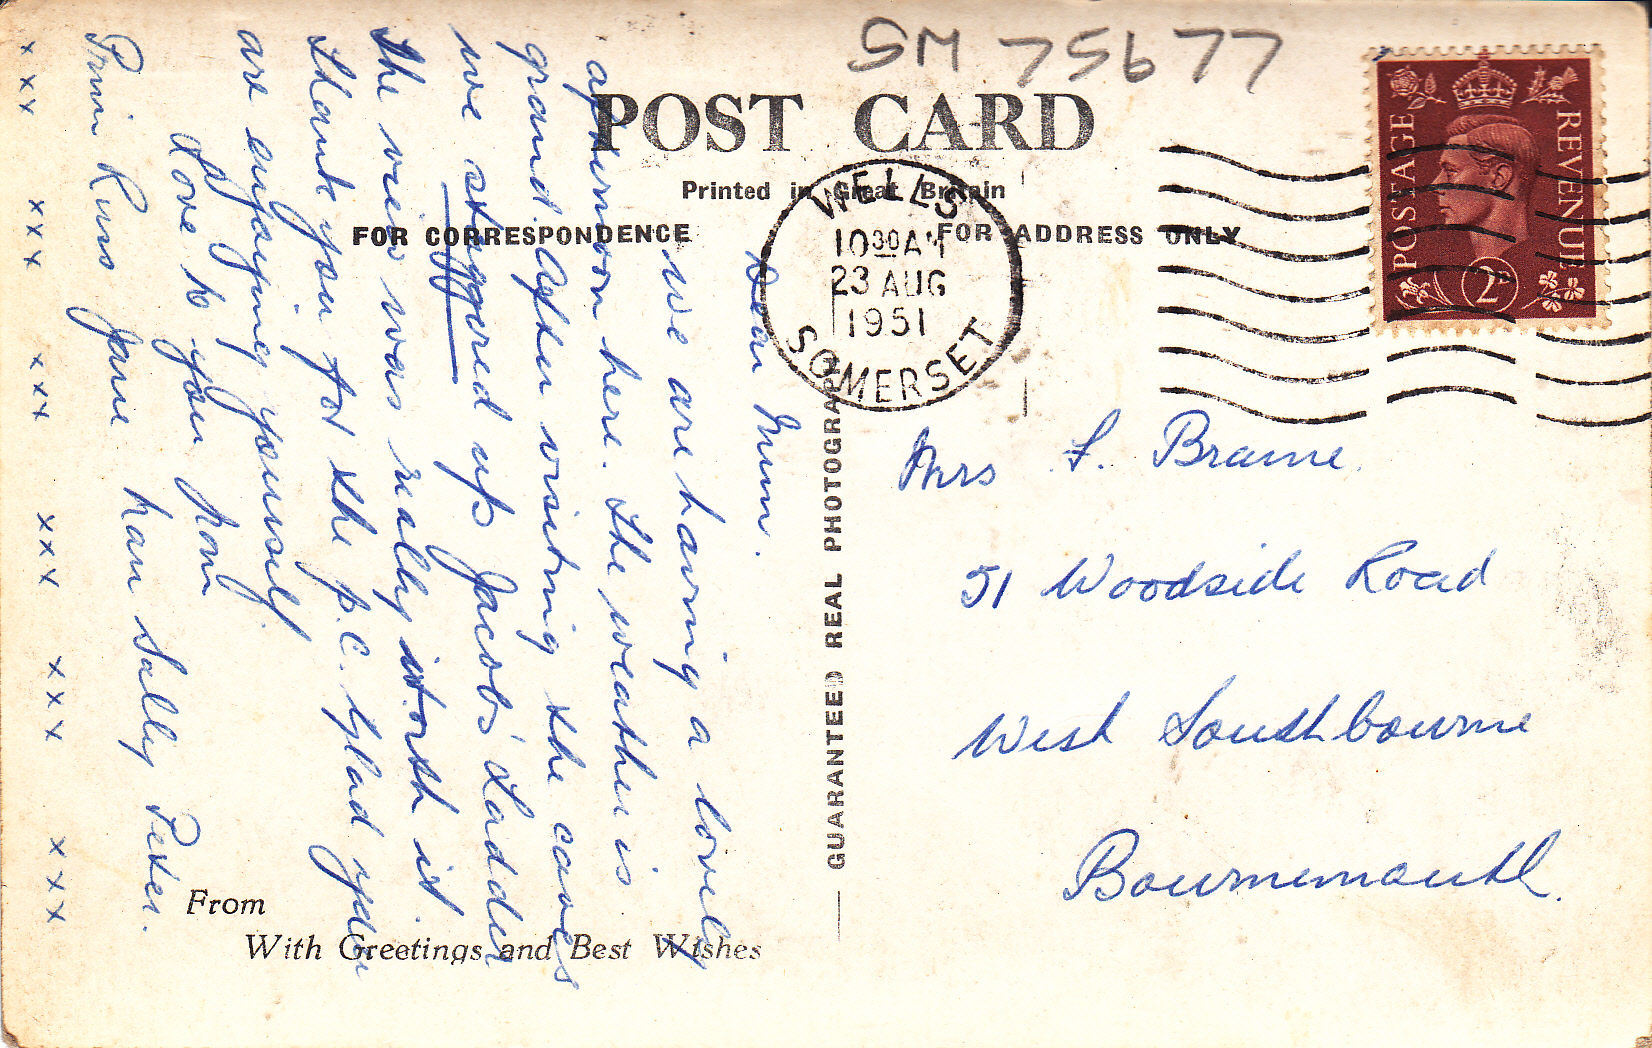 SM 75677
POST CARD
Printed in Great Britain
FOR CORRESPONDENCE
FOR ADDRESS ONLY
WELLS
10 30 AM
23 AUG
1951
SOMERSET
POSTAGE
REVENUE
2D
Dear Mum.
We are having a lovely
afternoon here. The weather is
grand. After visiting the caves
we staggered up Jacob's Ladder
the view was really worth it.
Thank you for the p.c. Glad you
are enjoying yourself.
Love to you from
Russ Jane Nan Sally Peter.
x x x x x x x x x x x x x x x x x x
GUARANTEED REAL PHOTOGRAPH
Mrs F. Brame
51 Woodside Road
West Southbourne
Bournemouth.
From
With Greetings and Best Wishes